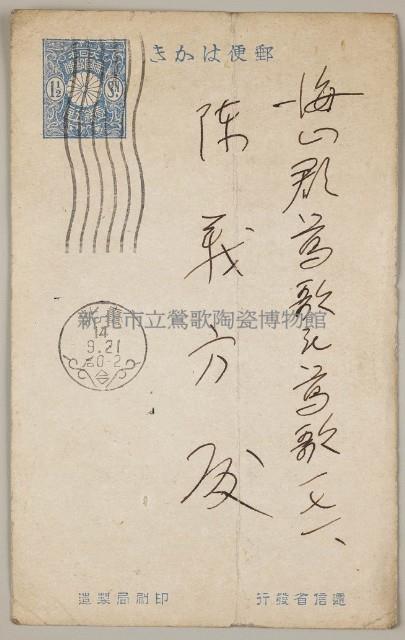 郵便はかき
1½ Sn
海山郡鶯歌庄鶯歌一七一
陳義方殿
14
9.21
后0-2
新北市立鶯歌陶瓷博物館
遞信省發行
印刷局製造